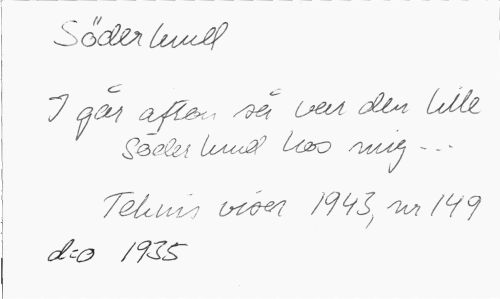 Söderlund
I går afton så var den lille
Söderlund hos mig...
Teknis visor 1943, nr 149
d:o 1935